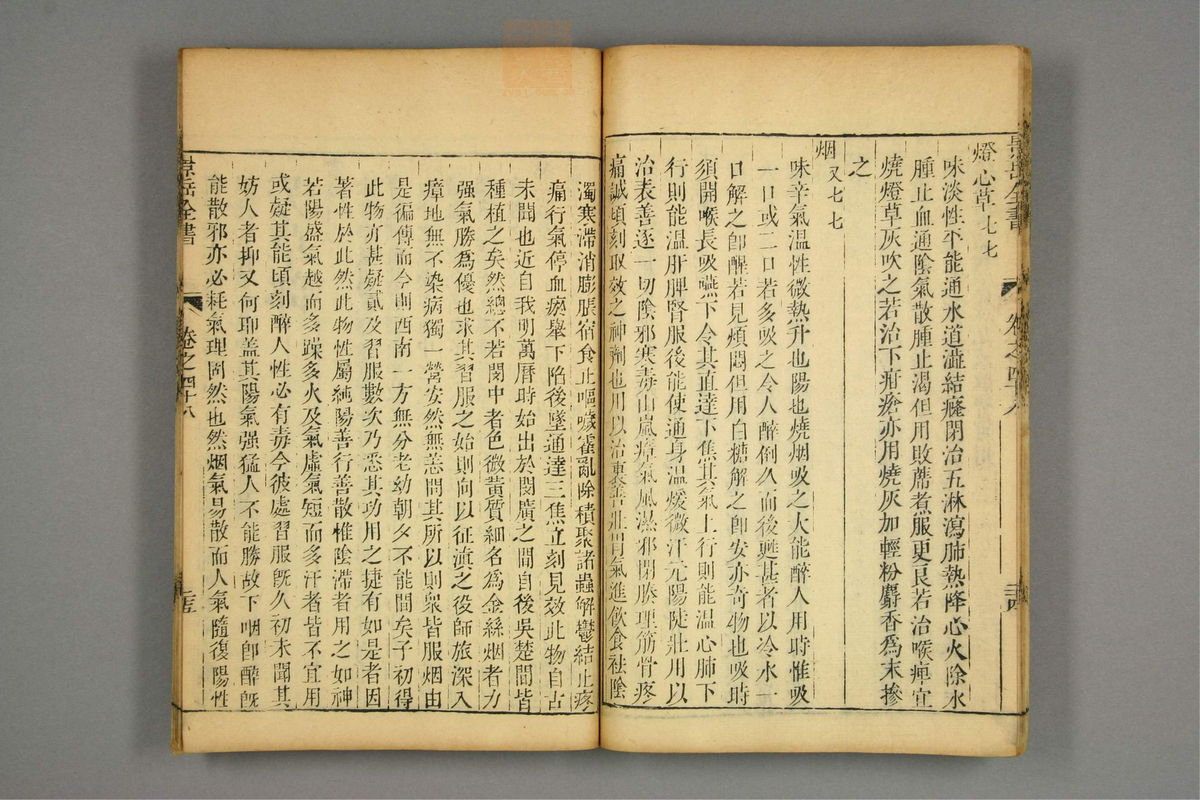 景岳全書
卷之四十八
燈心草七七
味淡性平能通水道澁結癃閉治五淋瀉肺熱降心火除水
腫止血通陰氣散腫止渴但用敗蓆煮服更良若治喉痺宜
燒燈草灰吹之若治下疳瘡亦用燒灰加輕粉麝香爲末摻
之
烟又七七
味辛氣温性微熱升也陽也燒烟吸之大能醉人用時惟吸
一口或二口若多吸之令人醉倒久而後甦甚者以冷水一
口解之卽醒若見煩悶但用白糖解之卽安亦奇物也吸時
須開喉長吸嚥下令其直達下焦其氣上行則能温心肺下
行則能温肝脾腎服後能使通身温煖微汗元陽陡壯用以
治表善逐一切陰邪寒毒山嵐瘴氣風濕邪閉腠理筋骨疼
痛誠頃刻取效之神劑也用以治裏善壯胃氣進飲食祛陰
濁寒滯消膨脹宿食止嘔噦霍亂除積聚諸蟲解鬱結止疼
痛行氣停血瘀舉下陷後墜通達三焦立刻見效此物自古
未聞也近自我明萬曆時始出於閩廣之間自後吳楚間皆
種植之矣然總不若閩中者色微黃質細名爲金絲烟者力
强氣勝爲優也求其習服之始則向以征滇之役師旅深入
瘴地無不染病獨一營安然無恙問其所以則衆皆服烟由
是徧傳而今則西南一方無分老幼朝夕不能間矣予初得
此物亦甚疑貳及習服數次乃悉其功用之捷有如是者因
著性於此然此物性屬純陽善行善散惟陰滯者用之如神
若陽盛氣越而多躁多火及氣虛氣短而多汗者皆不宜用
或疑其能頃刻醉人性必有毒今彼處習服旣久初未聞其
妨人者抑又何耶蓋其陽氣强猛人不能勝故下咽卽醉旣
能散邪亦必耗氣理固然也然烟氣易散而人氣隨復陽性
景岳全書
卷之四十八